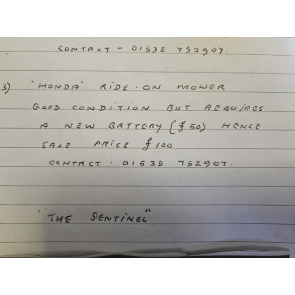 CONTACT - 01538 752907.
3) "HONDA" RIDE-ON MOWER
GOOD CONDITION BUT REQUIRES
A NEW BATTERY (£50) HENCE
SALE PRICE £100
CONTACT. 01538 752907.
"THE SENTINEL"